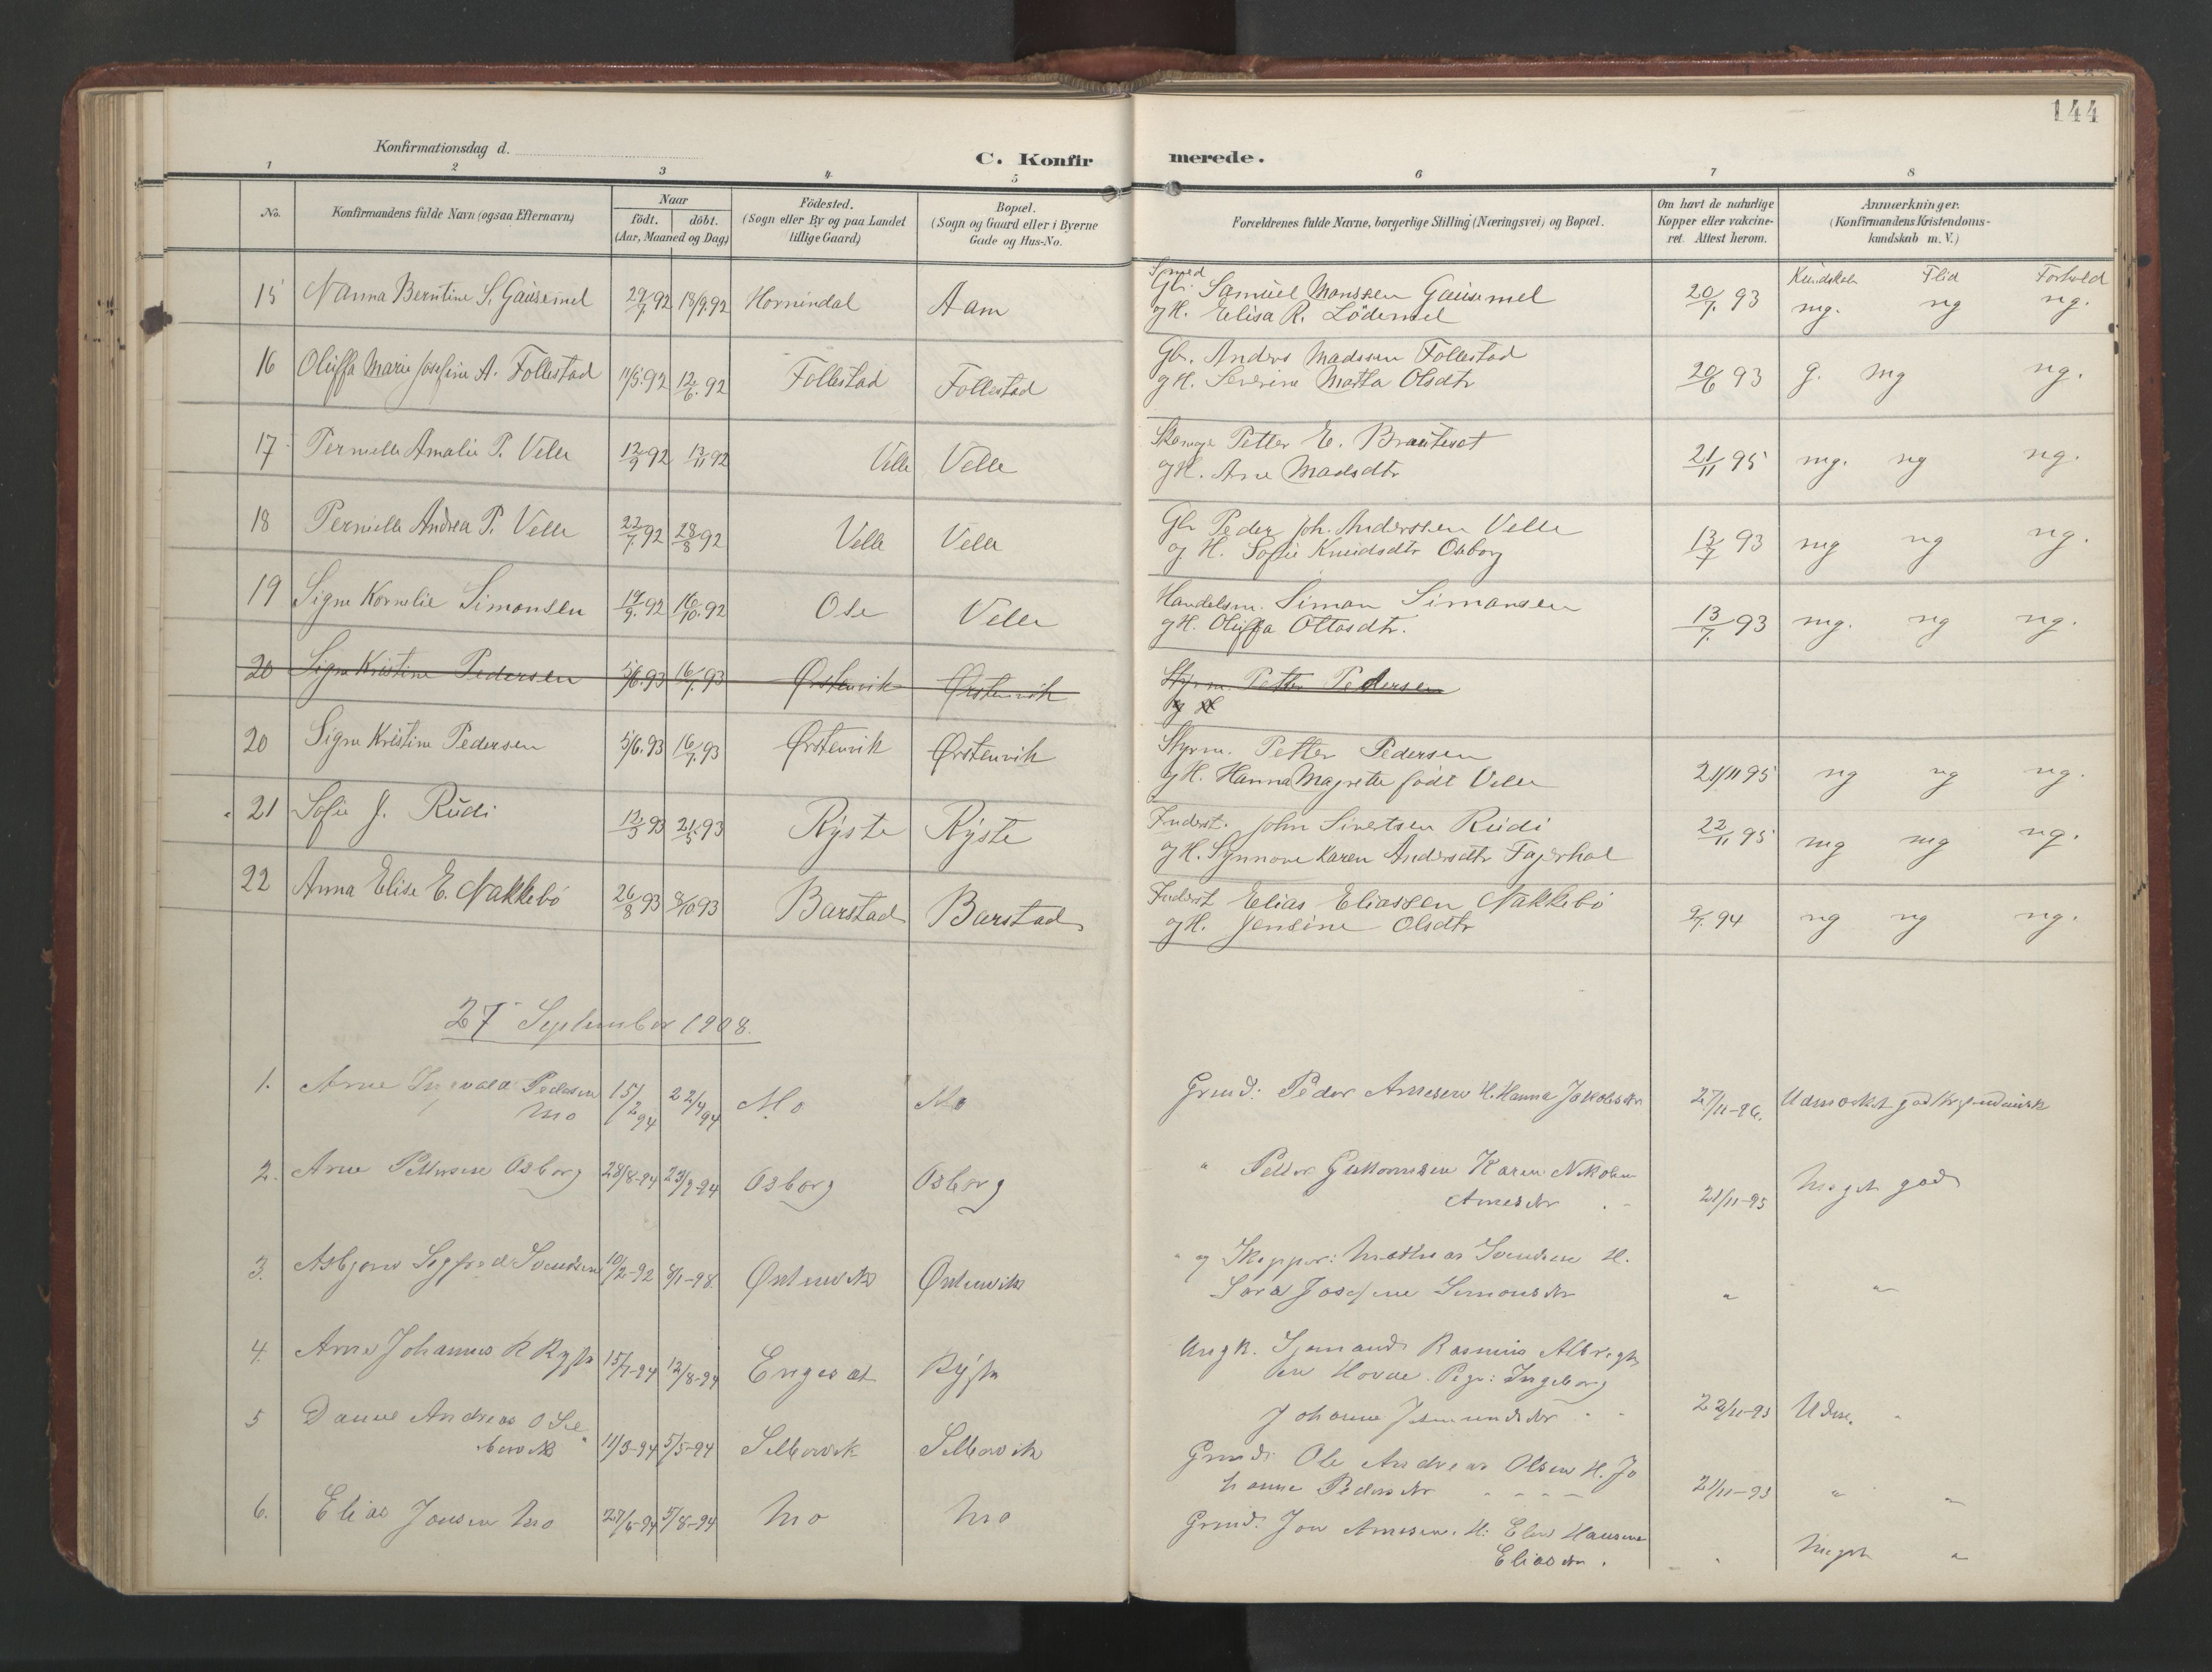 144
Konfirmationsdag d.
C. Konfirmerede.
1 2 3 4 5 6 7 8
No.
Konfirmandens fulde Navn (ogsaa Efternavn)
Naar
født. døbt.
(Aar, Maaned og Dag)
Födested.
(Sogn eller By og paa Landet
tillige Gaard)
Bopæl.
(Sogn og Gaard eller i Byerne
Gade og Hus-No.
Forældrenes fulde Navne, borgerlige Stilling (Næringsvei) og Bopæl.
Om havt de naturlige
Kopper eller vakcine-
ret. Attest herom.
Anmærkninger.
(Konfirmandens Kristendoms-
kundskab m. V.)
Kundskab Flid Forhold
15 Nanna Berntine S. Gausemel 29/7 92 18/9 92 Hornindal Aam
Smed
Gbr. Samuel Monssen Gausemel
og H. Elisa R. Lödemel
20/7. 93 mg. ng ng.
16 Oluffa Marie Josefine A. Follestad 11/5. 92 12/6. 92 Follestad Follestad
Gbr. Anders Madssen Follestad
og H. Severine Matta Olsdtr
20/6 93 g. mg ng.
17 Pernille Amalie P. Velle 12/9 92 13/11 92 Velle Velle
Skomager Petter E. Brauteset
og H. Ane Madsdtr
21/11 95 mg. ng ng.
18 Pernille Andrea P. Velle 22/7. 92 28/8 92 Velle Velle
Gbr Peder Joh. Anderssen Velle
og H. Sofie Knudsdtr Osborg
13/7 93 mg ng ng.
19 Signe Kornelie Simonsen 19/9. 92 16/10. 92 Ose Velle
Handelsm. Simon Simonsen
og H. Oluffa Ottosdtr.
13/7. 93 mg. ng ng.
20 Signe Kristine Pedersen 5/6. 93 16/7. 93 Ørstenvik Ørstenvik
Styrm. Petter Pedersen
og H
20 Signe Kristine Pedersen 5/6. 93 16/7. 93 Ørstenvik Ørstenvik
Styrm. Petter Pedersen
og H. Hanna Magrette født Velle
21/11 95 ng ng ng.
21 Sofie J. Rudi 12/3 93 21/5. 93 Ryste Ryste
Inderst. John Sivertsen Rudi
og H. Synnove Karen Andersdtr Fagerhol
22/11 95 mg mg ng.
22 Anna Elise E. Nakkebö 26/8 93 8/10 93 Barstad Barstad
Inderst Elias Eliassen Nakkebö
og H. Jensine Olsdtr
9/7. 94 ng ng ng.
27 September 1908.
1. Arne Ingvald Pedersen
Mo
15/2 94 22/4 94 Mo Mo
Grmd: Peder Arnesen H. Hanna Jakobsdtr
27/11-96.
2. Arne Pettersen Osborg 28/8-94 23/9-94 Osborg Osborg
" Petter Guttormsen Karen Nikoline
Arnesdtr
21/11-95 Meget god
3. Asbjørn Sigfred Svendsen 10/2-92 8/1-98. Ørstenvik Ørstenvik
" og Skipper: Mathias Svendsen H.
Sara Josefine Simonsdtr
" "
4. Arne Johannes R Ryste 15/7-94 12/8-94 Engeset Ryste
Ungk. Sjømand Rasmus Albregt
sen Hovde. Pige: Ingeborg
Johanne
22/11-95 Udm.
5 Daniel Andreas O Sæ
bervik
11/3-94 5/5-94 Sætervik Sætervik
Grmd: Ole Andreas Olsen H. Jo
hanne Pedersdtr
21/11-95 " "
6. Elias Jonsen Mo 27/6-94 5/8-94 Mo Mo
Grmd. Jon Arnesen. H: Elen Hansine
Eliasdtr.
" Meget "